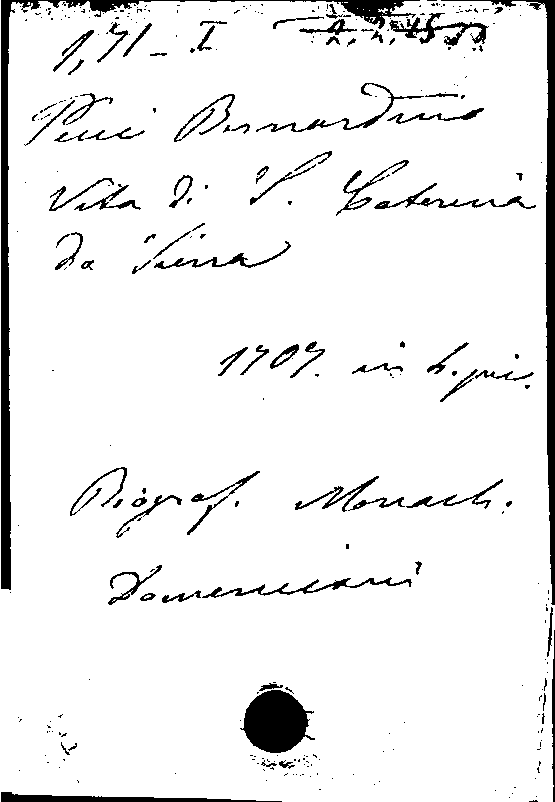 1,71 - I
Pecci Bernardino
Vita di S. Caterina
da Siena
1707. in 4. pic.
Biograf. Monach.
Domenicani